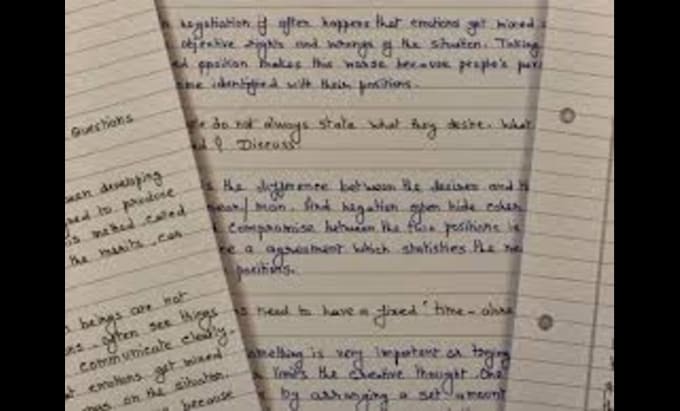 Questions
developing
to produce
is method called
the merits can
beings are not
often see things
communicate clearly.
emotions get mixed
on the situation.
because
negotiation if often happens that emotions get mixed
objective rights and wrongs of the situation. Taking
opposition makes this worse because people's
identified with their positions.
do not always state what they desire. What
? Discuss
the difference between the desires and
/ man. And negation often hide
compromise between the two positions is
a agreement which statisfies the
positions.
need to have a fixed "time-
something is very important or trying
limits the creative thought. One
by arranging a set amount